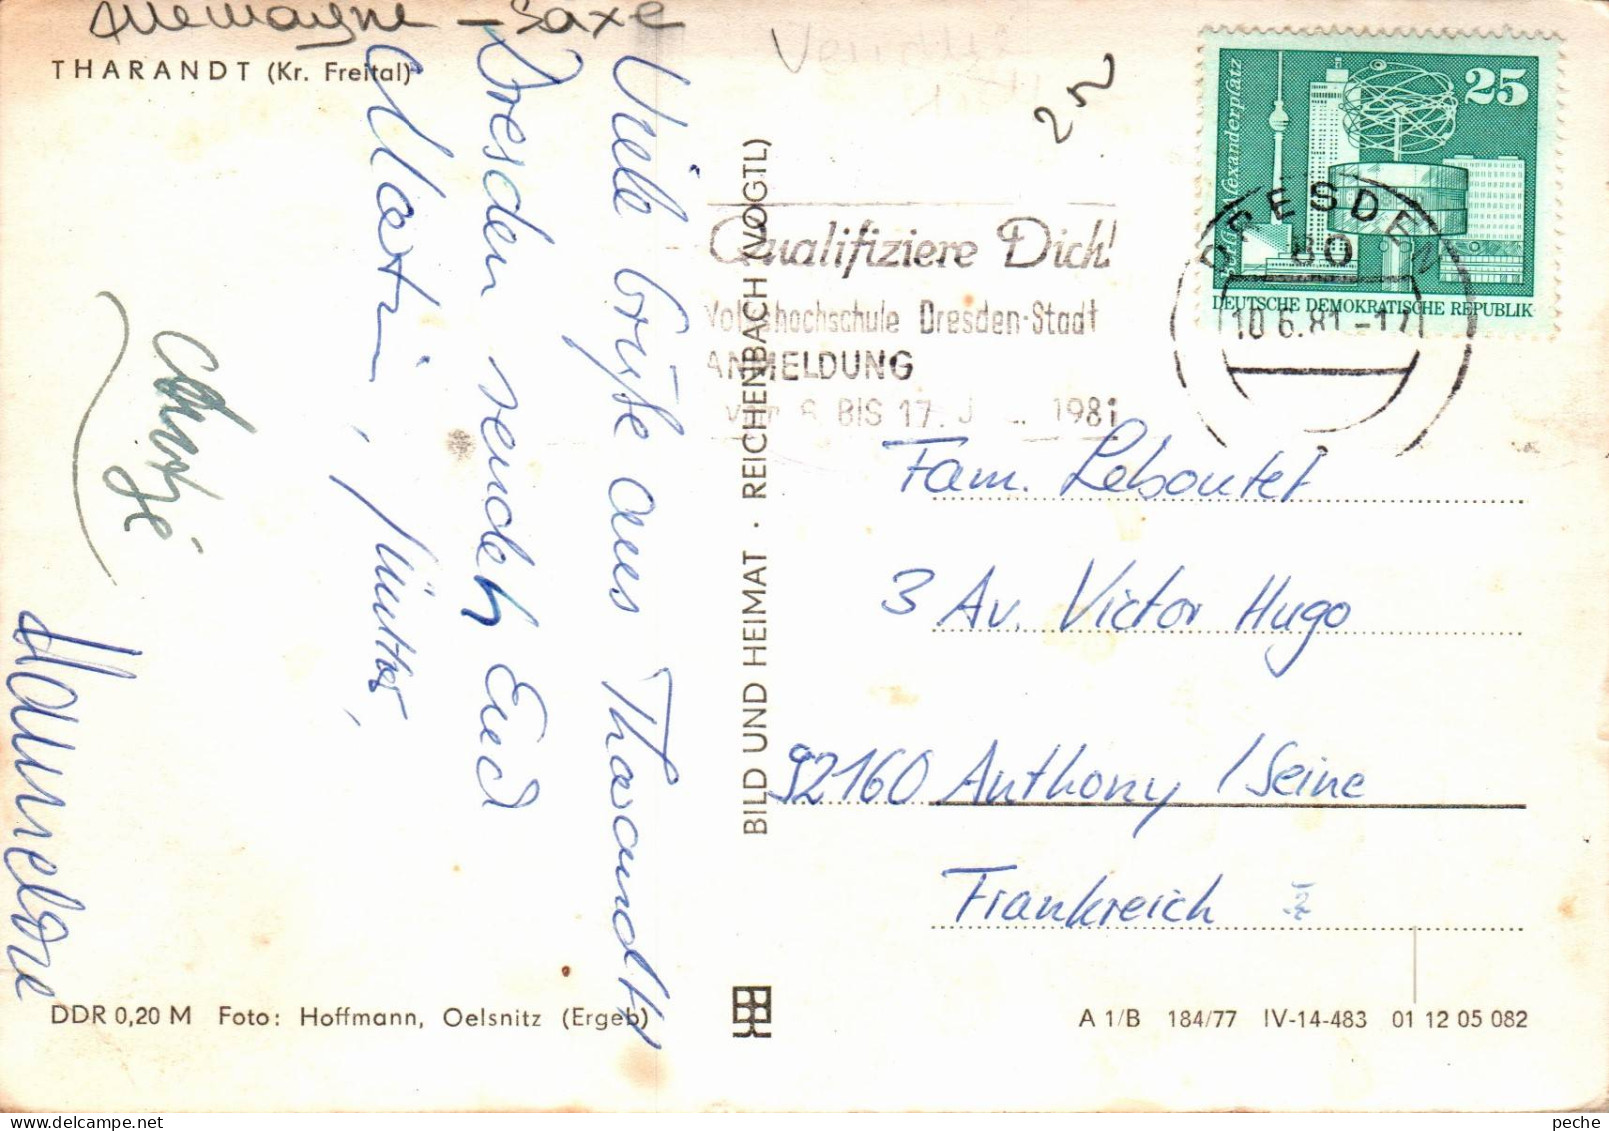 Allemagne - Saxe
THARANDT (Kr. Freital)
Viele Grüße aus Tharandt
Dresden sendet Euch
Günther,
Hannelore
Antje
DDR 0,20 M Foto: Hoffmann, Oelsnitz (Ergeb)
BILD UND HEIMAT · REICHENBACH (VOGTL)
25
Alexanderplatz
DEUTSCHE DEMOKRATISCHE REPUBLIK
DRESDEN
80
10.6.81-17
Qualifiziere Dich!
Volkshochschule Dresden-Stadt
ANMELDUNG
BIS 17. 1981
Fam. Leboutet
3 Av. Victor Hugo
92160 Anthony /Seine
Frankreich
A 1/B 184/77 IV-14-483 01 12 05 082
peche